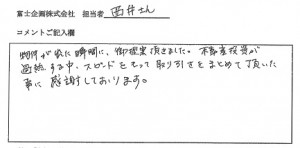 富士企画株式会社 担当者 西井さん
コメントご記入欄
物件が公に瞬間に、御提案頂きました。不動産投資が
過熱する中、スピードをもって取り引きをまとめて頂いた
事に感謝しております。